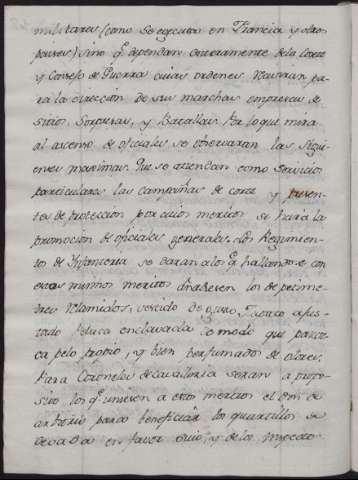 militares (como se egecuta en Francia y otros
paises) sino q.e dependan enteramente de la Corte
y Consejo de Guerra cuias ordenes
para la direccion de sus marchas empresas de
sitios, Sorpresas, y Batallas. Por lo que mira
al ascenso de oficiales se observaran las siguien
tes maximas. Que se atiendan como servicios
particulares las campañas de corte y
de proteccion por cuios meritos se hará la
promocion de oficiales generales. Los Regimien
tos de Infanteria se daran a los q.e hallandose con
estos mismos meritos añadieren los de petime
tres relamidos, vestido de gusto,
Peluca enclavada de modo que parez
ca pelo propio, y bien perfumados de olores.
Para Coroneles de Cavalleria seran a propo
sito los q.e unieren a este merito el Don de
arbitrio para beneficiar los quartillos de
cevada en favor suio, y de los Inspecto